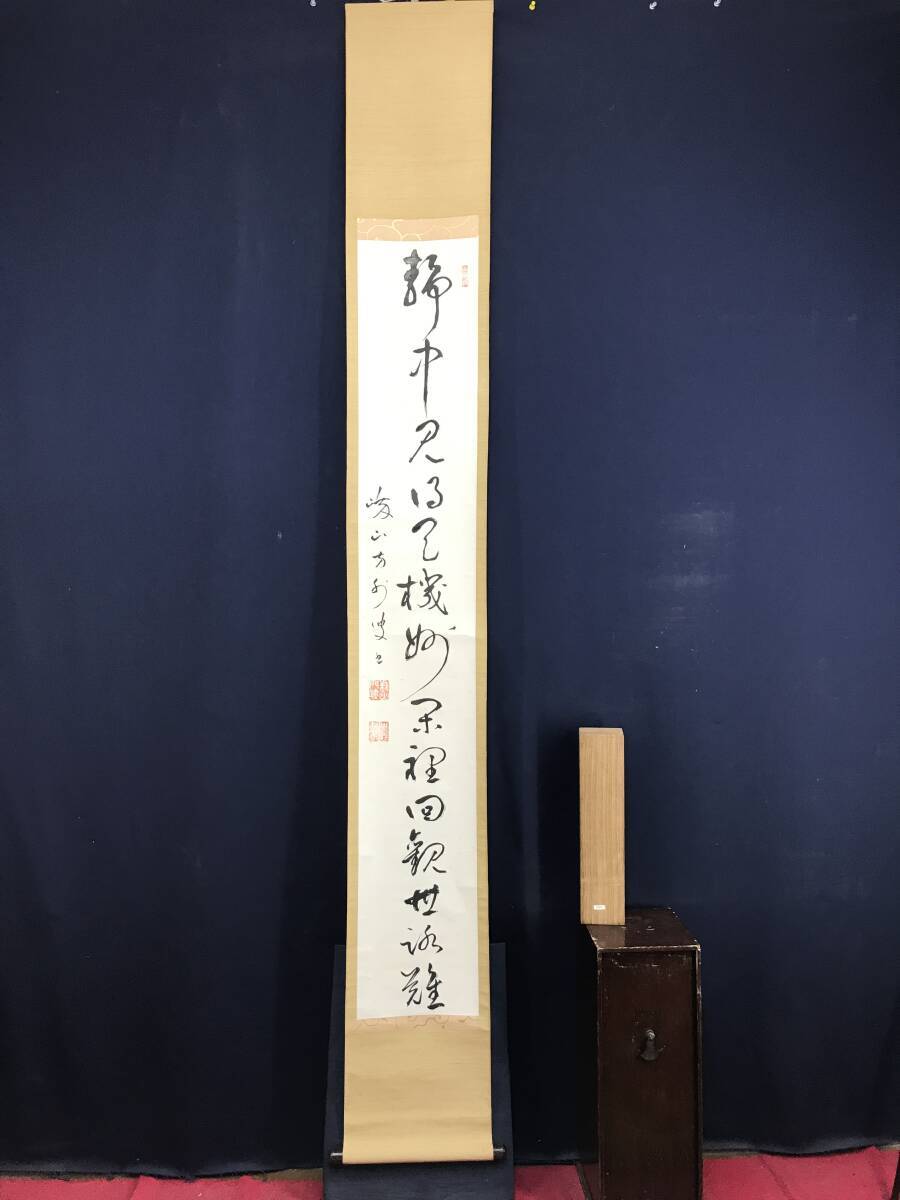 静中見得天機妙閑裡回観世路難
山方外叟書